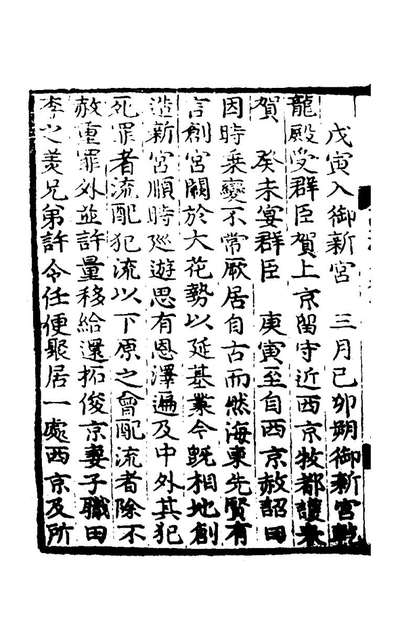 戊寅入御新宮　三月己卯朔御新宮乾
龍殿受群臣賀上京留守近西京牧都護表
賀　癸未宴群臣　庚寅至自西京赦詔曰
因時乗變不常厥居自古而然海東先賢有
言創宮闕於大花勢以延基業今旣相地創
造新宮順時廵遊思有恩澤遍及中外其犯
死罪者流配犯流以下原之曾配流者除不
赦重罪外並許量移給還拓俊京妻子職田
李之羙兄弟許令任便聚居一處西京及所